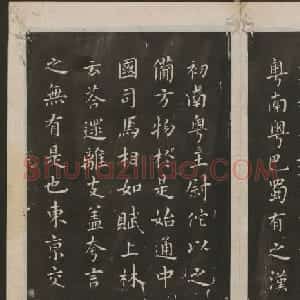 粵南粵巴蜀有之漢
初南粵王尉佗以之
備方物於是始通中
國司馬相如賦上林
云荅遝離支蓋夸言
之無有是也東京交
Shufaziliao.COM